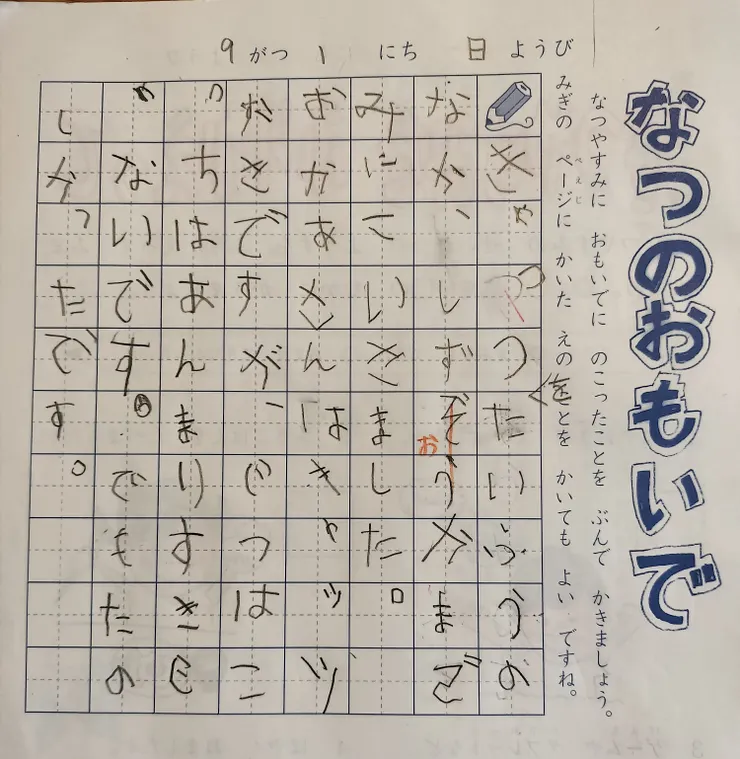 なつのおもいで
なつやすみに おもいでに のこったことを ぶんで かきましょう。
みぎの ページに かいた えの ことを かいても よい ですね。
ぺえじ
9 がつ 1 にち 日 ようび
きゃっつたいふうの
を
なか、しずぞうがまで
お
みにこいきました。
おかあさんはきゃッツ
だきですが、じつはこ
っちはあんまりすきじ
ゃないです。でもたの
しかったです。